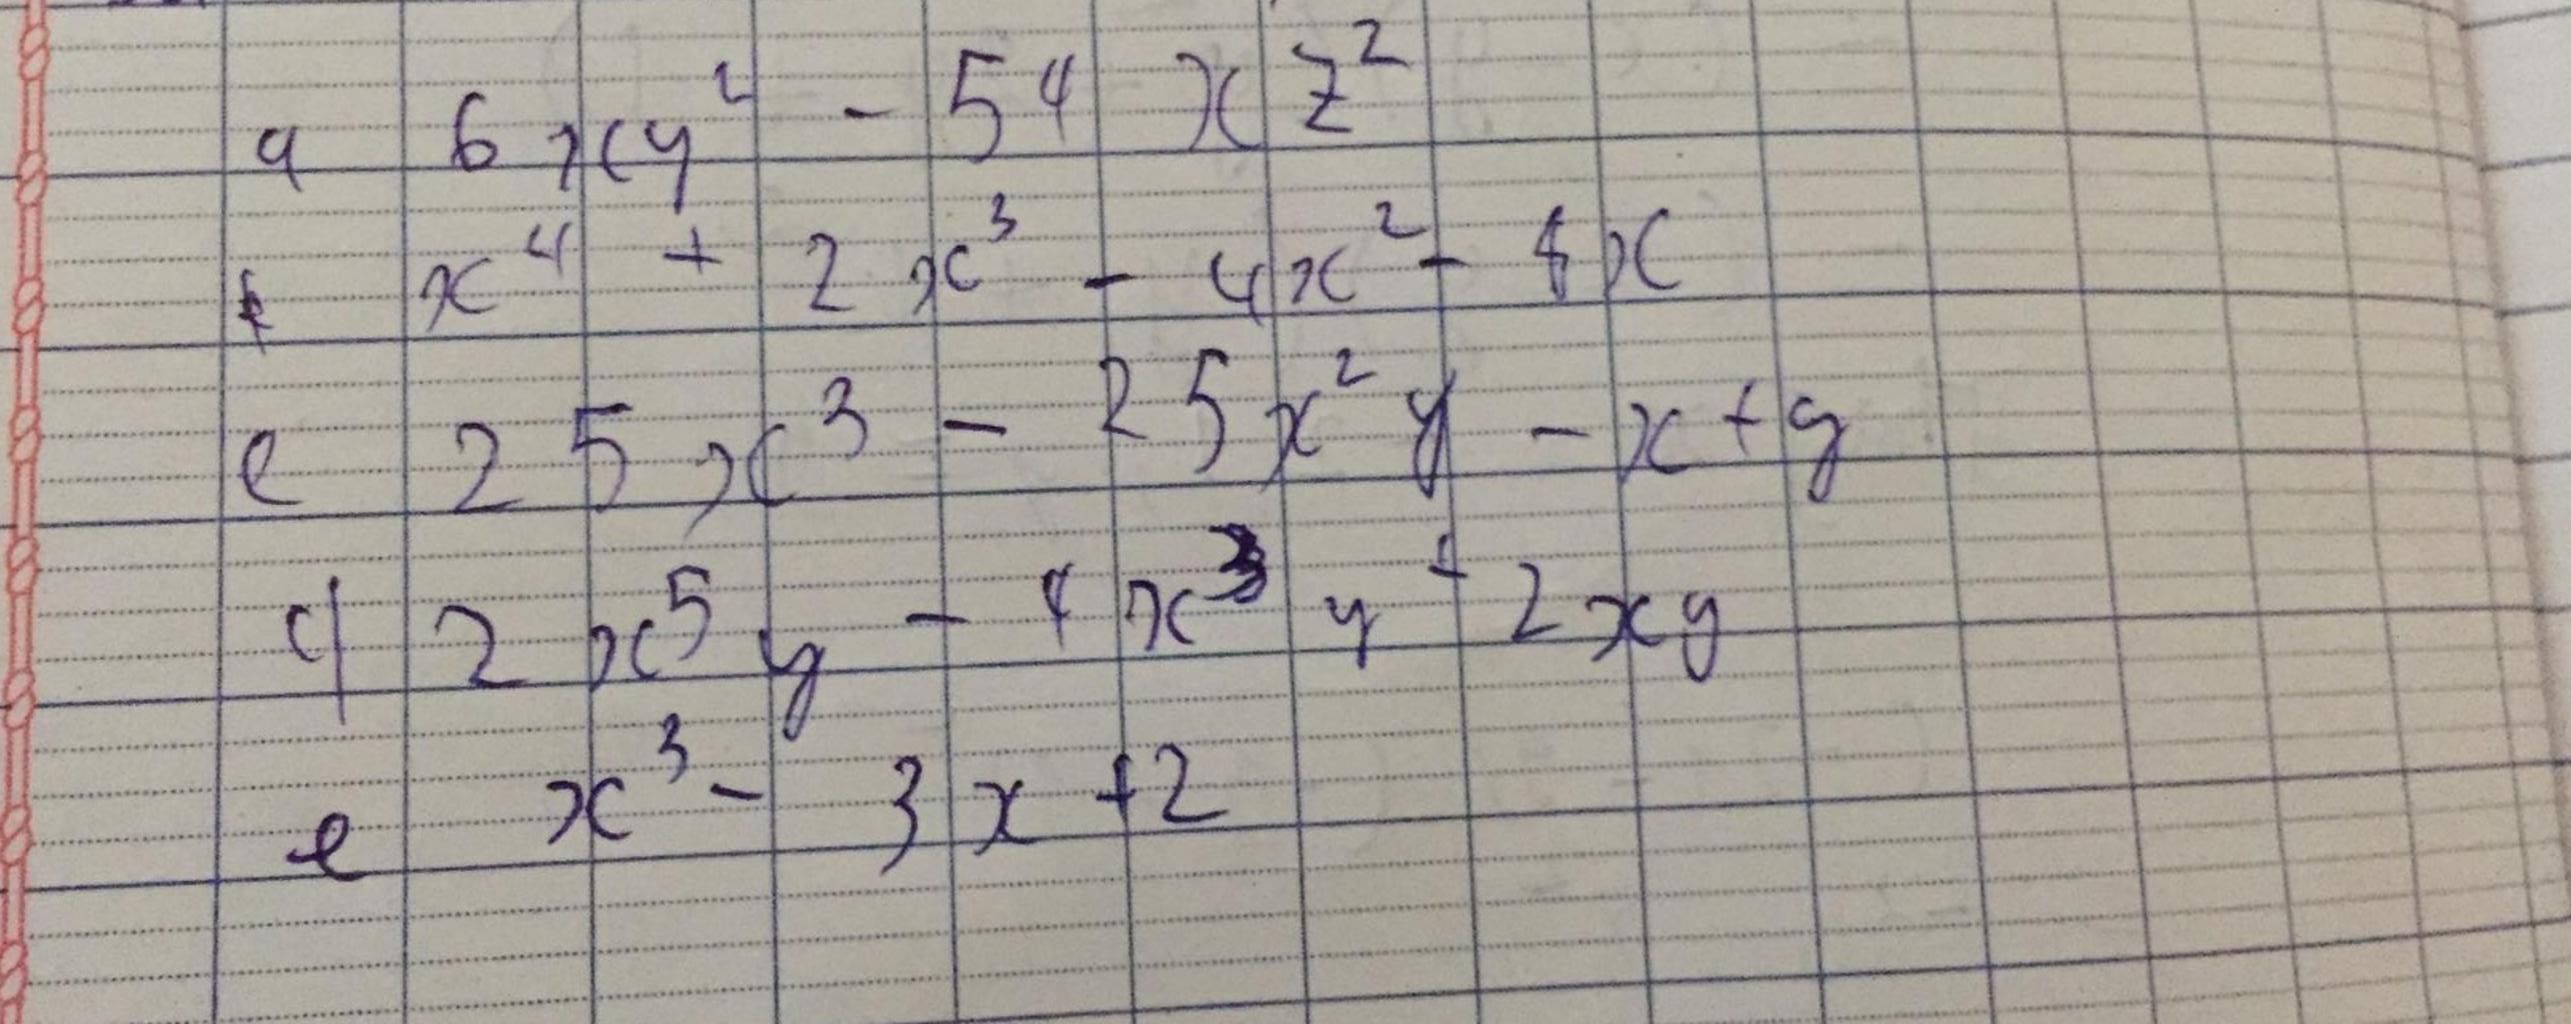 a 6xy² - 54xz²
x⁴ + 2x³ - 4x² - 8x
c 25x³ - 25x²y - x + y
d 2x⁵y - 4x³y + 2xy
e x³ - 3x + 2